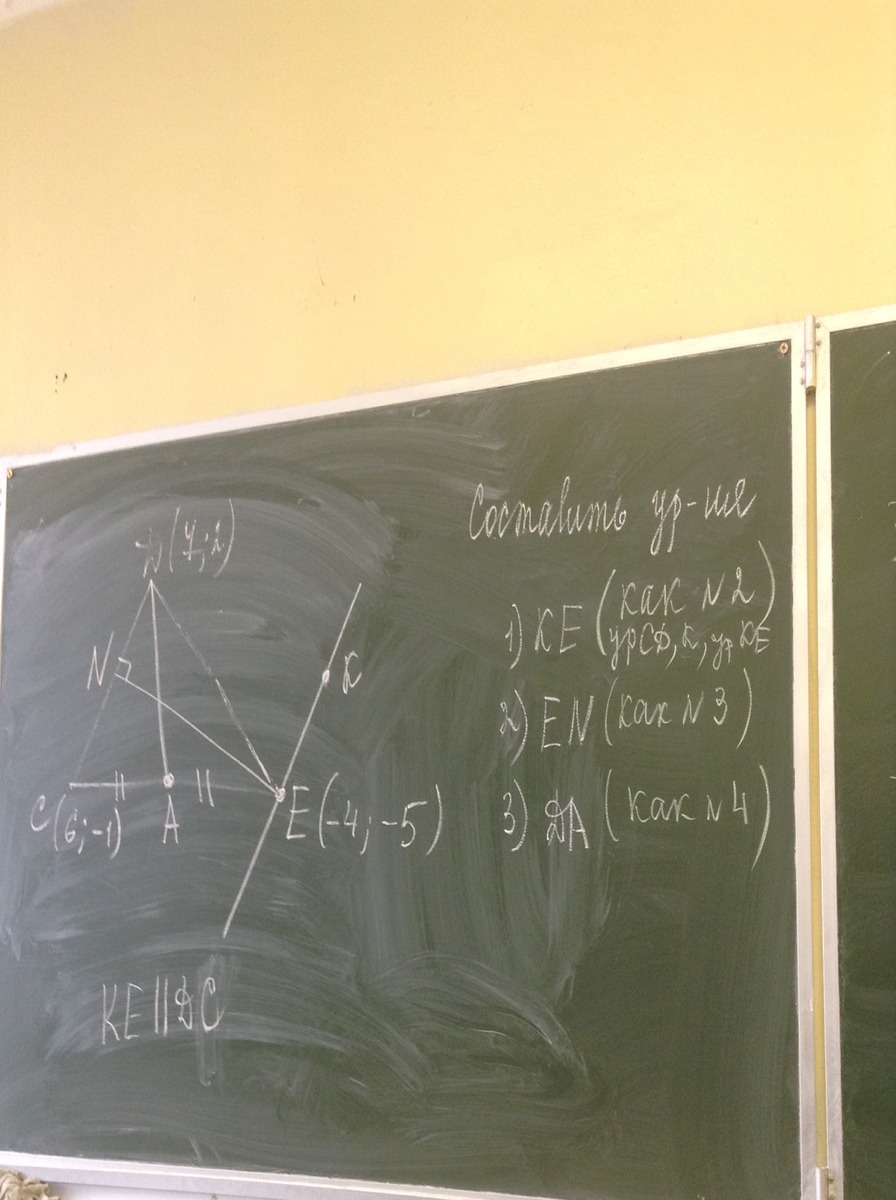 Составить ур-ия
1) KE (как N2)
ур СД, к, ур KE
2) EN (как N3)
3) ДА (как N4)
Д(7;2)
N
K
C(6;-1)
A
E(-4;-5)
KE||ДС